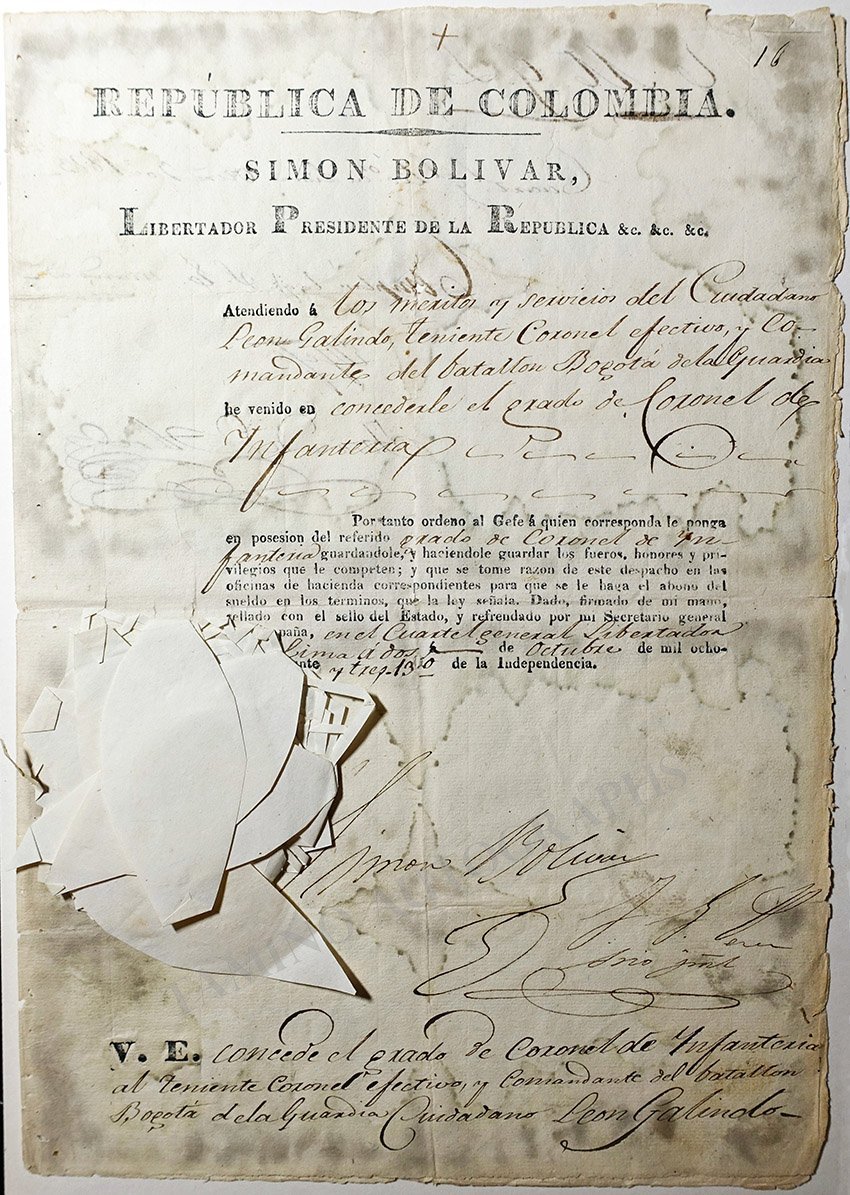 16
REPÚBLICA DE COLOMBIA.
SIMON BOLIVAR,
LIBERTADOR PRESIDENTE DE LA REPUBLICA &c. &c. &c.
Atendiendo á los meritos y servicios del Ciudadano
Leon Galindo, teniente Coronel efectivo, y Co-
mandante del batallon Bogotá de la Guardia
he venido en concederle el grado de Coronel de
Infanteria
Por tanto ordeno al Gefe á quien corresponda le ponga
en posesion del referido grado de Coronel de In-
fanteria guardandole, y haciendole guardar los fueros, honores y pri-
vilegios que le competen; y que se tome razon de este despacho en las
oficinas de hacienda correspondientes para que se le haga el abono del
sueldo en los términos, que la ley señala. Dado, firmado de mi mano,
sellado con el sello del Estado, y refrendado por mi Secretario general
paña, en el Cuartel general Libertador
Lima á dos de Octubre de mil ocho-
nte y tres-13º de la Independencia.
Simon Bolivar
TAMINO AUTOGRAPHS
V. E. concede el grado de Coronel de Infanteria
al teniente Coronel efectivo, y Comandante del batallon
Bogotá de la Guardia Ciudadano Leon Galindo-